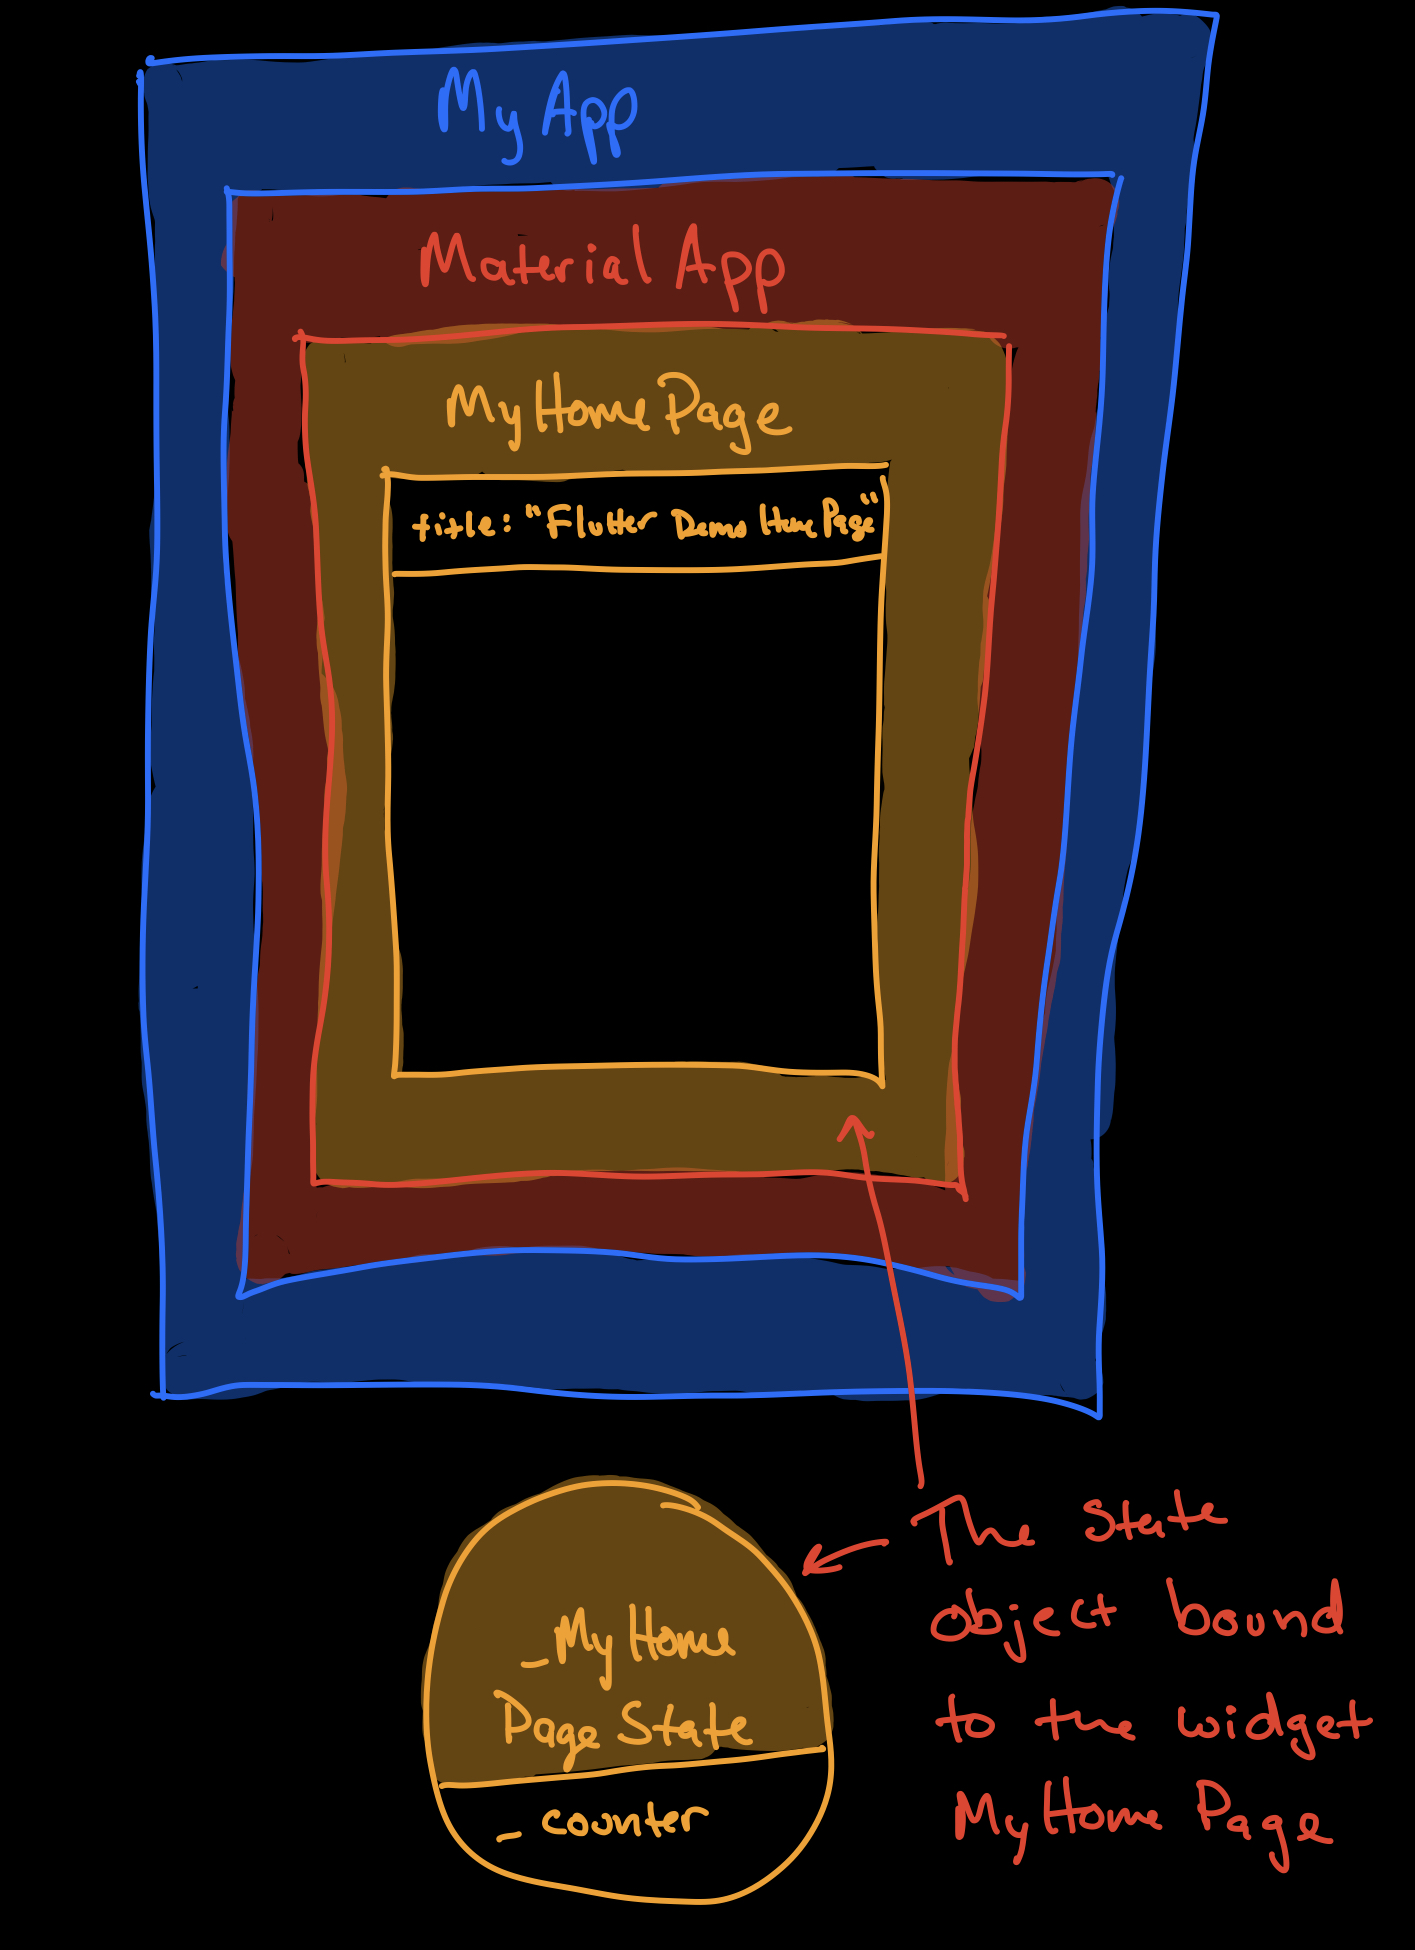 My App
Material App
MyHomePage
title: "Flutter Demo Home Page"
_MyHome
Page State
_counter
The state
object bound
to the widget
MyHome Page